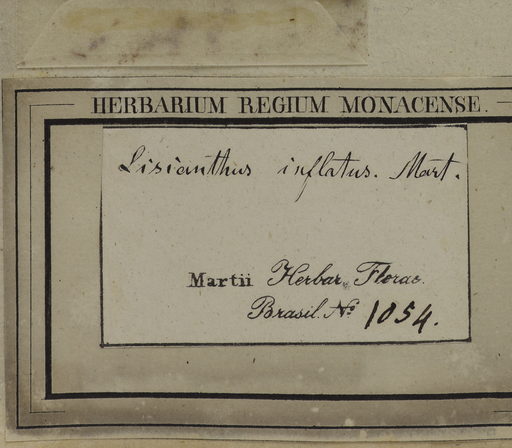 HERBARIUM REGIUM MONACENSE.
Lisianthus inflatus. Mart.
Martii Herbar. Florae.
Brasil. No 1054.